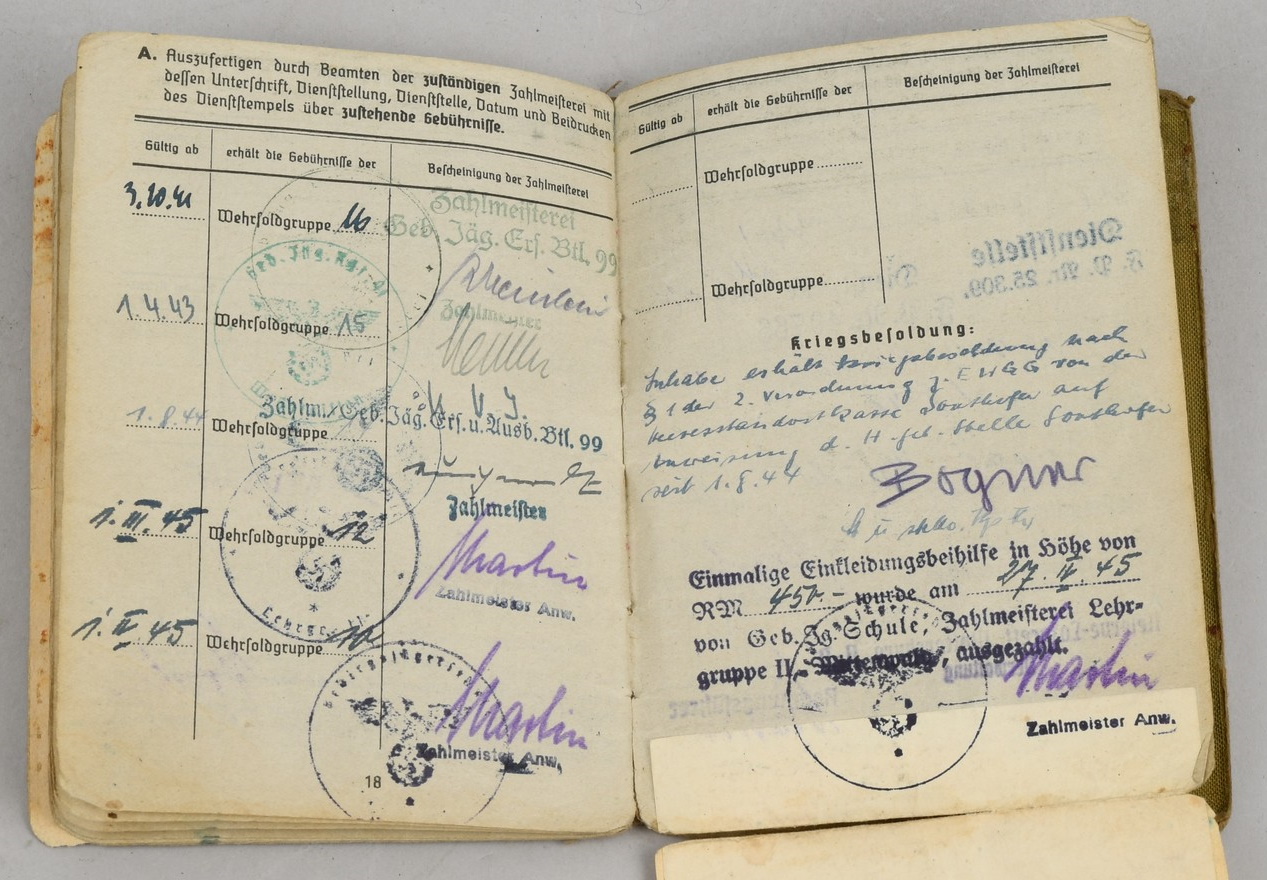 A. Auszufertigen durch Beamten der zuständigen Zahlmeisterei mit
dessen Unterschrift, Dienststellung, Dienststelle, Datum und Beidrucken
des Dienststempels über zustehende Gebührnisse.
Gültig ab
erhält die Gebührnisse der
Bescheinigung der Zahlmeisterei
3.10.41
Wehrsoldgruppe 16
Zahlmeisterei
Geb. Jäg. Ers. Btl. 99
Geb. Jäg.
1.4.43
Wehrsoldgruppe 15
Zahlmeister
1.8.44
Wehrsoldgruppe
Zahlm. Geb. Jäg. Ers. u. Ausb. Btl. 99
Zahlmeister
1. III. 45
Wehrsoldgruppe 12
Martin
Zahlmeister Anw.
Lehrgr.
1. IV 45
Wehrsoldgruppe
Gebirgsjäger
Martin
Zahlmeister Anw.
18
Gültig ab
erhält die Gebührnisse der
Bescheinigung der Zahlmeisterei
Wehrsoldgruppe
Wehrsoldgruppe
Dienststelle
F. P. Nr. 25 309
Kriegsbesoldung:
Inhaber erhält Kriegsbesoldung nach
§ 1 der 2. Verordnung z. EWGG von der
Heeresstandortkasse Sonthofen auf
Anweisung d. H. Geb. Stelle Sonthofen
seit 1.8.44
Bogner
Einmalige Einkleidungsbeihilfe in Höhe von
RM 450.- wurde am 27. IV. 45
von Geb. Jg. Schule, Zahlmeisterei Lehr-
gruppe II, Mittenwald, ausgezahlt.
Martin
Zahlmeister Anw.